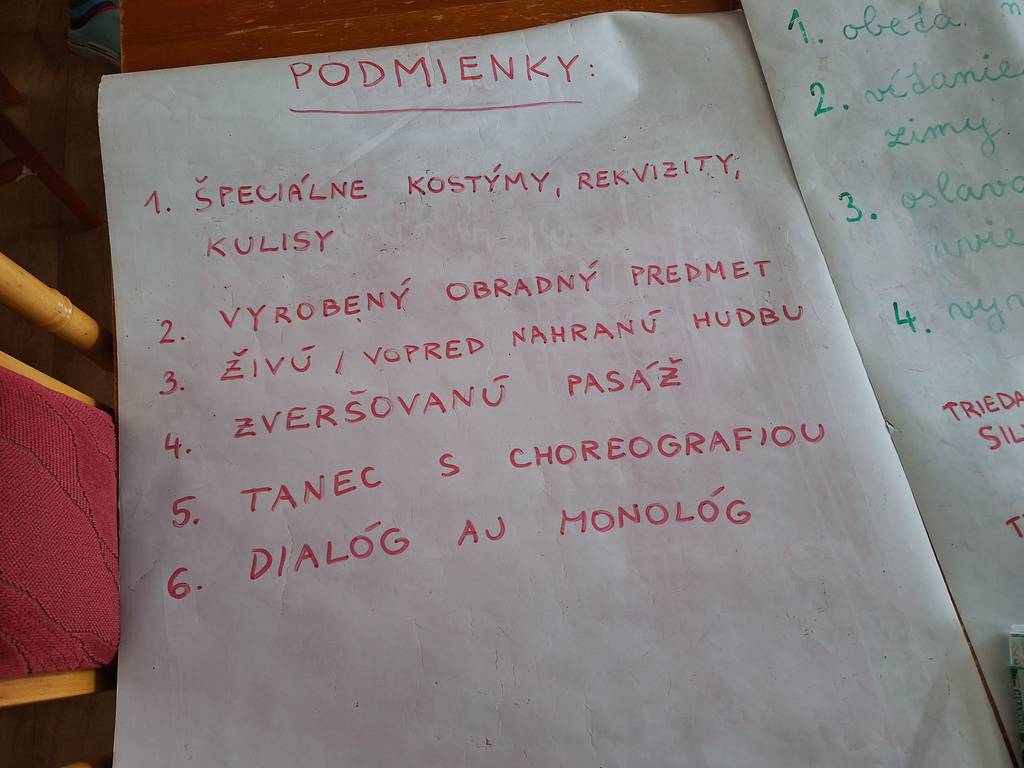 PODMIENKY:
1. ŠPECIÁLNE KOSTÝMY, REKVIZITY,
KULISY
2. VYROBENÝ OBRADNÝ PREDMET
3. ŽIVÚ / VOPRED NAHRANÚ HUDBU
4. ZVERŠOVANÚ PASÁŽ
5. TANEC S CHOREOGRAFIOU
6. DIALÓG AJ MONOLÓG
1. obeťa
2. vítanie
zimy
3.
4.
TRIEDA